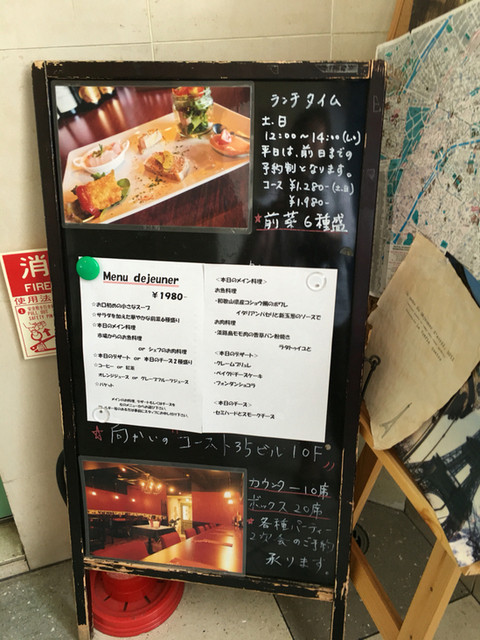 ランチタイム
土、日
12:00〜14:00(L.o)
平日は、前日までの
予約制となります。
コース ¥1.280-(土.日)
¥1.980-
★前菜6種盛
Menu dejeuner
¥1980-
☆お口初めの小さなスープ
☆サラダを加えた華やかな前菜6種盛り
☆本日のメイン料理
市場からのお魚料理
or シェフのお肉料理
☆本日のデザート or 本日のチーズ2種盛り
☆コーヒー or 紅茶
オレンジジュース or グレープフルーツジュース
☆バケット
<本日のメイン料理>
お魚料理
・和歌山県産コショウ鯛のポワレ
イタリアンパセリと新玉葱のソースで
お肉料理
・淡路鳥モモ肉の香草パン粉焼き
ラタトゥイユと
<本日のデザート>
・クレームブリュレ
・ベイクドチーズケーキ
・フォンダンショコラ
<本日のチーズ>
・セミハードとスモークチーズ
★向かいの コースト35ビル 10F
カウンター10席
ボックス20席
★各種パーティー
2次会のご予約
承ります
消
FIRE
使用法